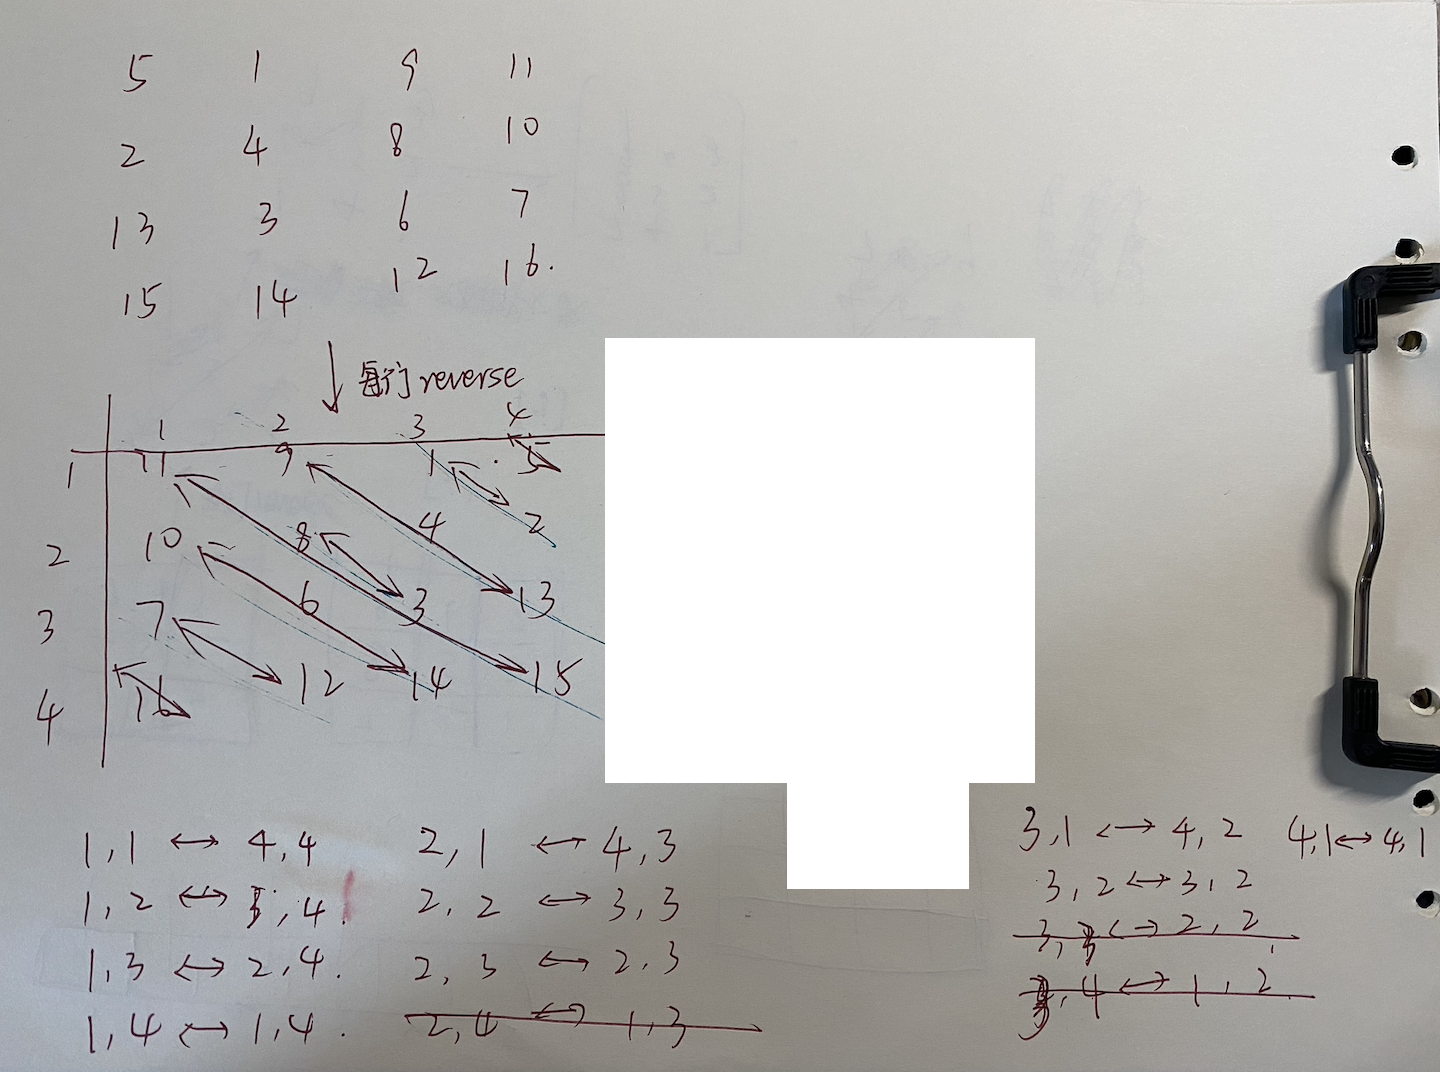 5 1 9 11
2 4 8 10
13 3 6 7
15 14 12 16.
每行 reverse
1 2 3 4
1 11 9 1 5
2 10 8 4 2
3 7 6 3 13
4 16 12 14 15
1,1 ↔ 4,4 2,1 ↔ 4,3 3,1 ↔ 4,2 4,1 ↔ 4,1
1,2 ↔ 3,4. 2,2 ↔ 3,3 3,2 ↔ 3,2
1,3 ↔ 2,4. 2,3 ↔ 2,3 3,3 ↔ 2,2
1,4 ↔ 1,4. 2,4 ↔ 1,3 3,4 ↔ 1,2